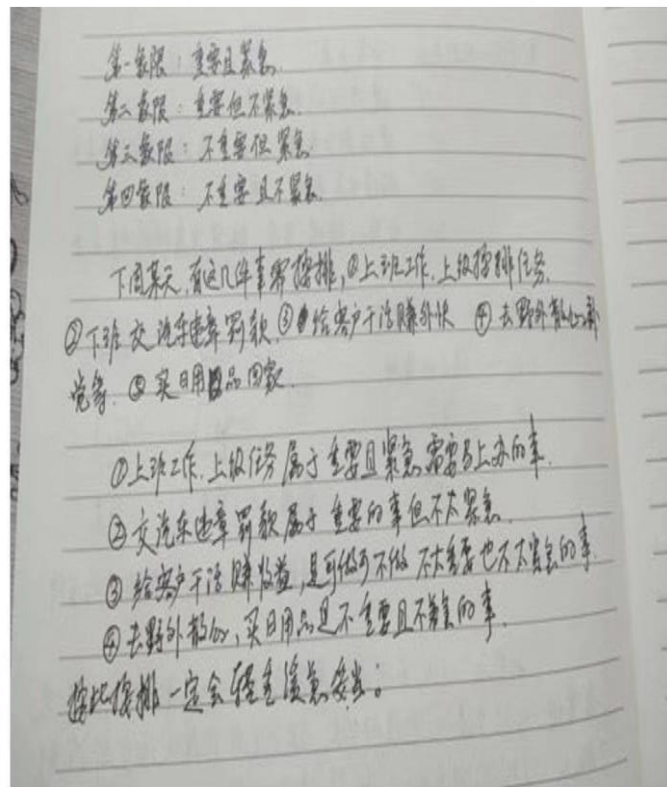 第一象限：重要且紧急.
第二象限：重要但不紧急.
第三象限：不重要但紧急
第四象限：不重要且不紧急.
下周某天,有这几件事需按排,①上班工作.上级按排任务.
②下班交汽车违章罚款.③给客户干活赚外快 ④去野外散心
⑤买日用品回家.
①上班工作.上级任务属于重要且紧急需要马上办的事.
②交汽车违章罚款属于重要的事但不太紧急.
③给客户干活赚收益,是可做可不做不太重要也不太紧急的事.
④去野外散心,买日用品是不重要且不紧急的事.
按此按排一定会轻重缓急妥当;